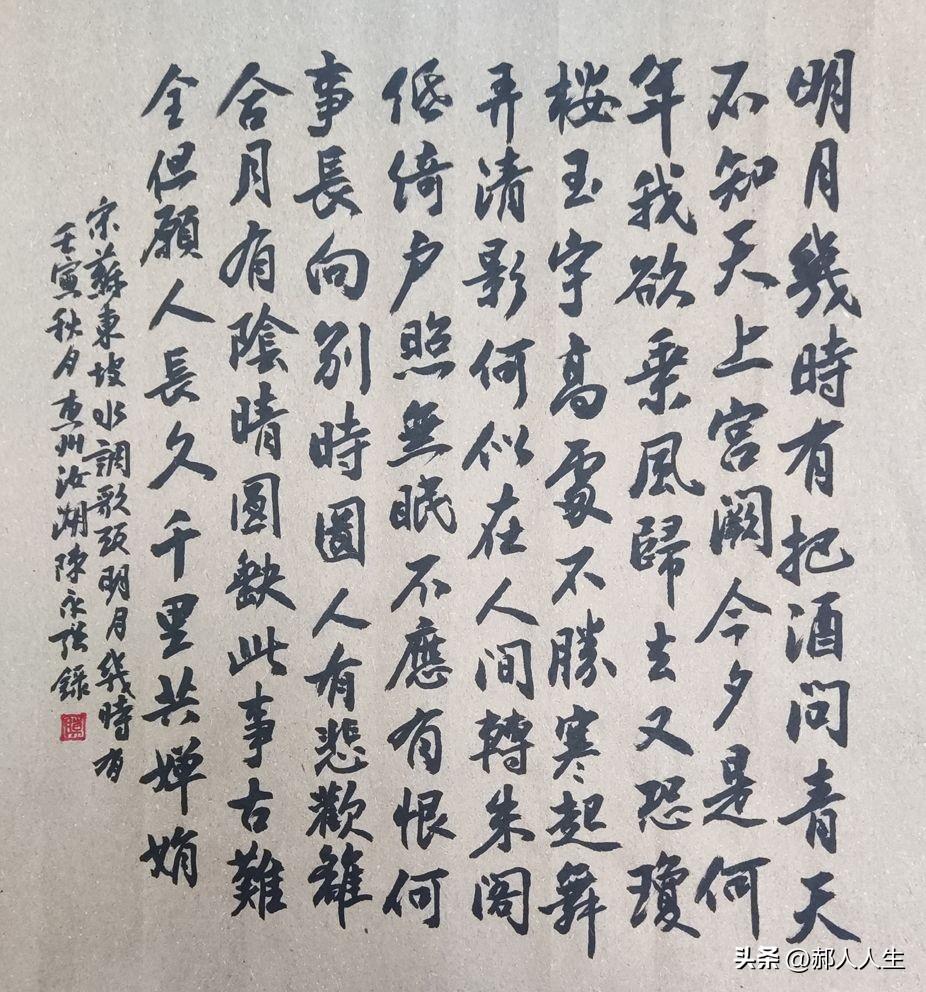 明月幾時有把酒問青天
不知天上宫闕今夕是何
年我欲乗風歸去又恐瓊
楼玉宇高處不勝寒起舞
弄清影何似在人间轉朱阁
低绮户照無眠不應有恨何
事長向别時圆人有悲歡離
合月有陰晴圆缺此事古難
全但願人長久千里共婵娟
宋蘇東坡水調歌頭明月幾時有
壬寅秋月惠州汝湖陳永強錄
头条 @郝人人生